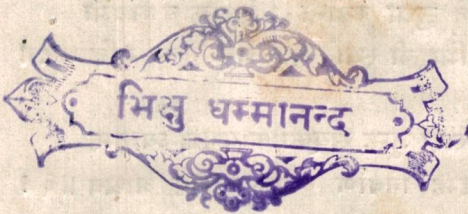 भिक्षु धम्मानन्द